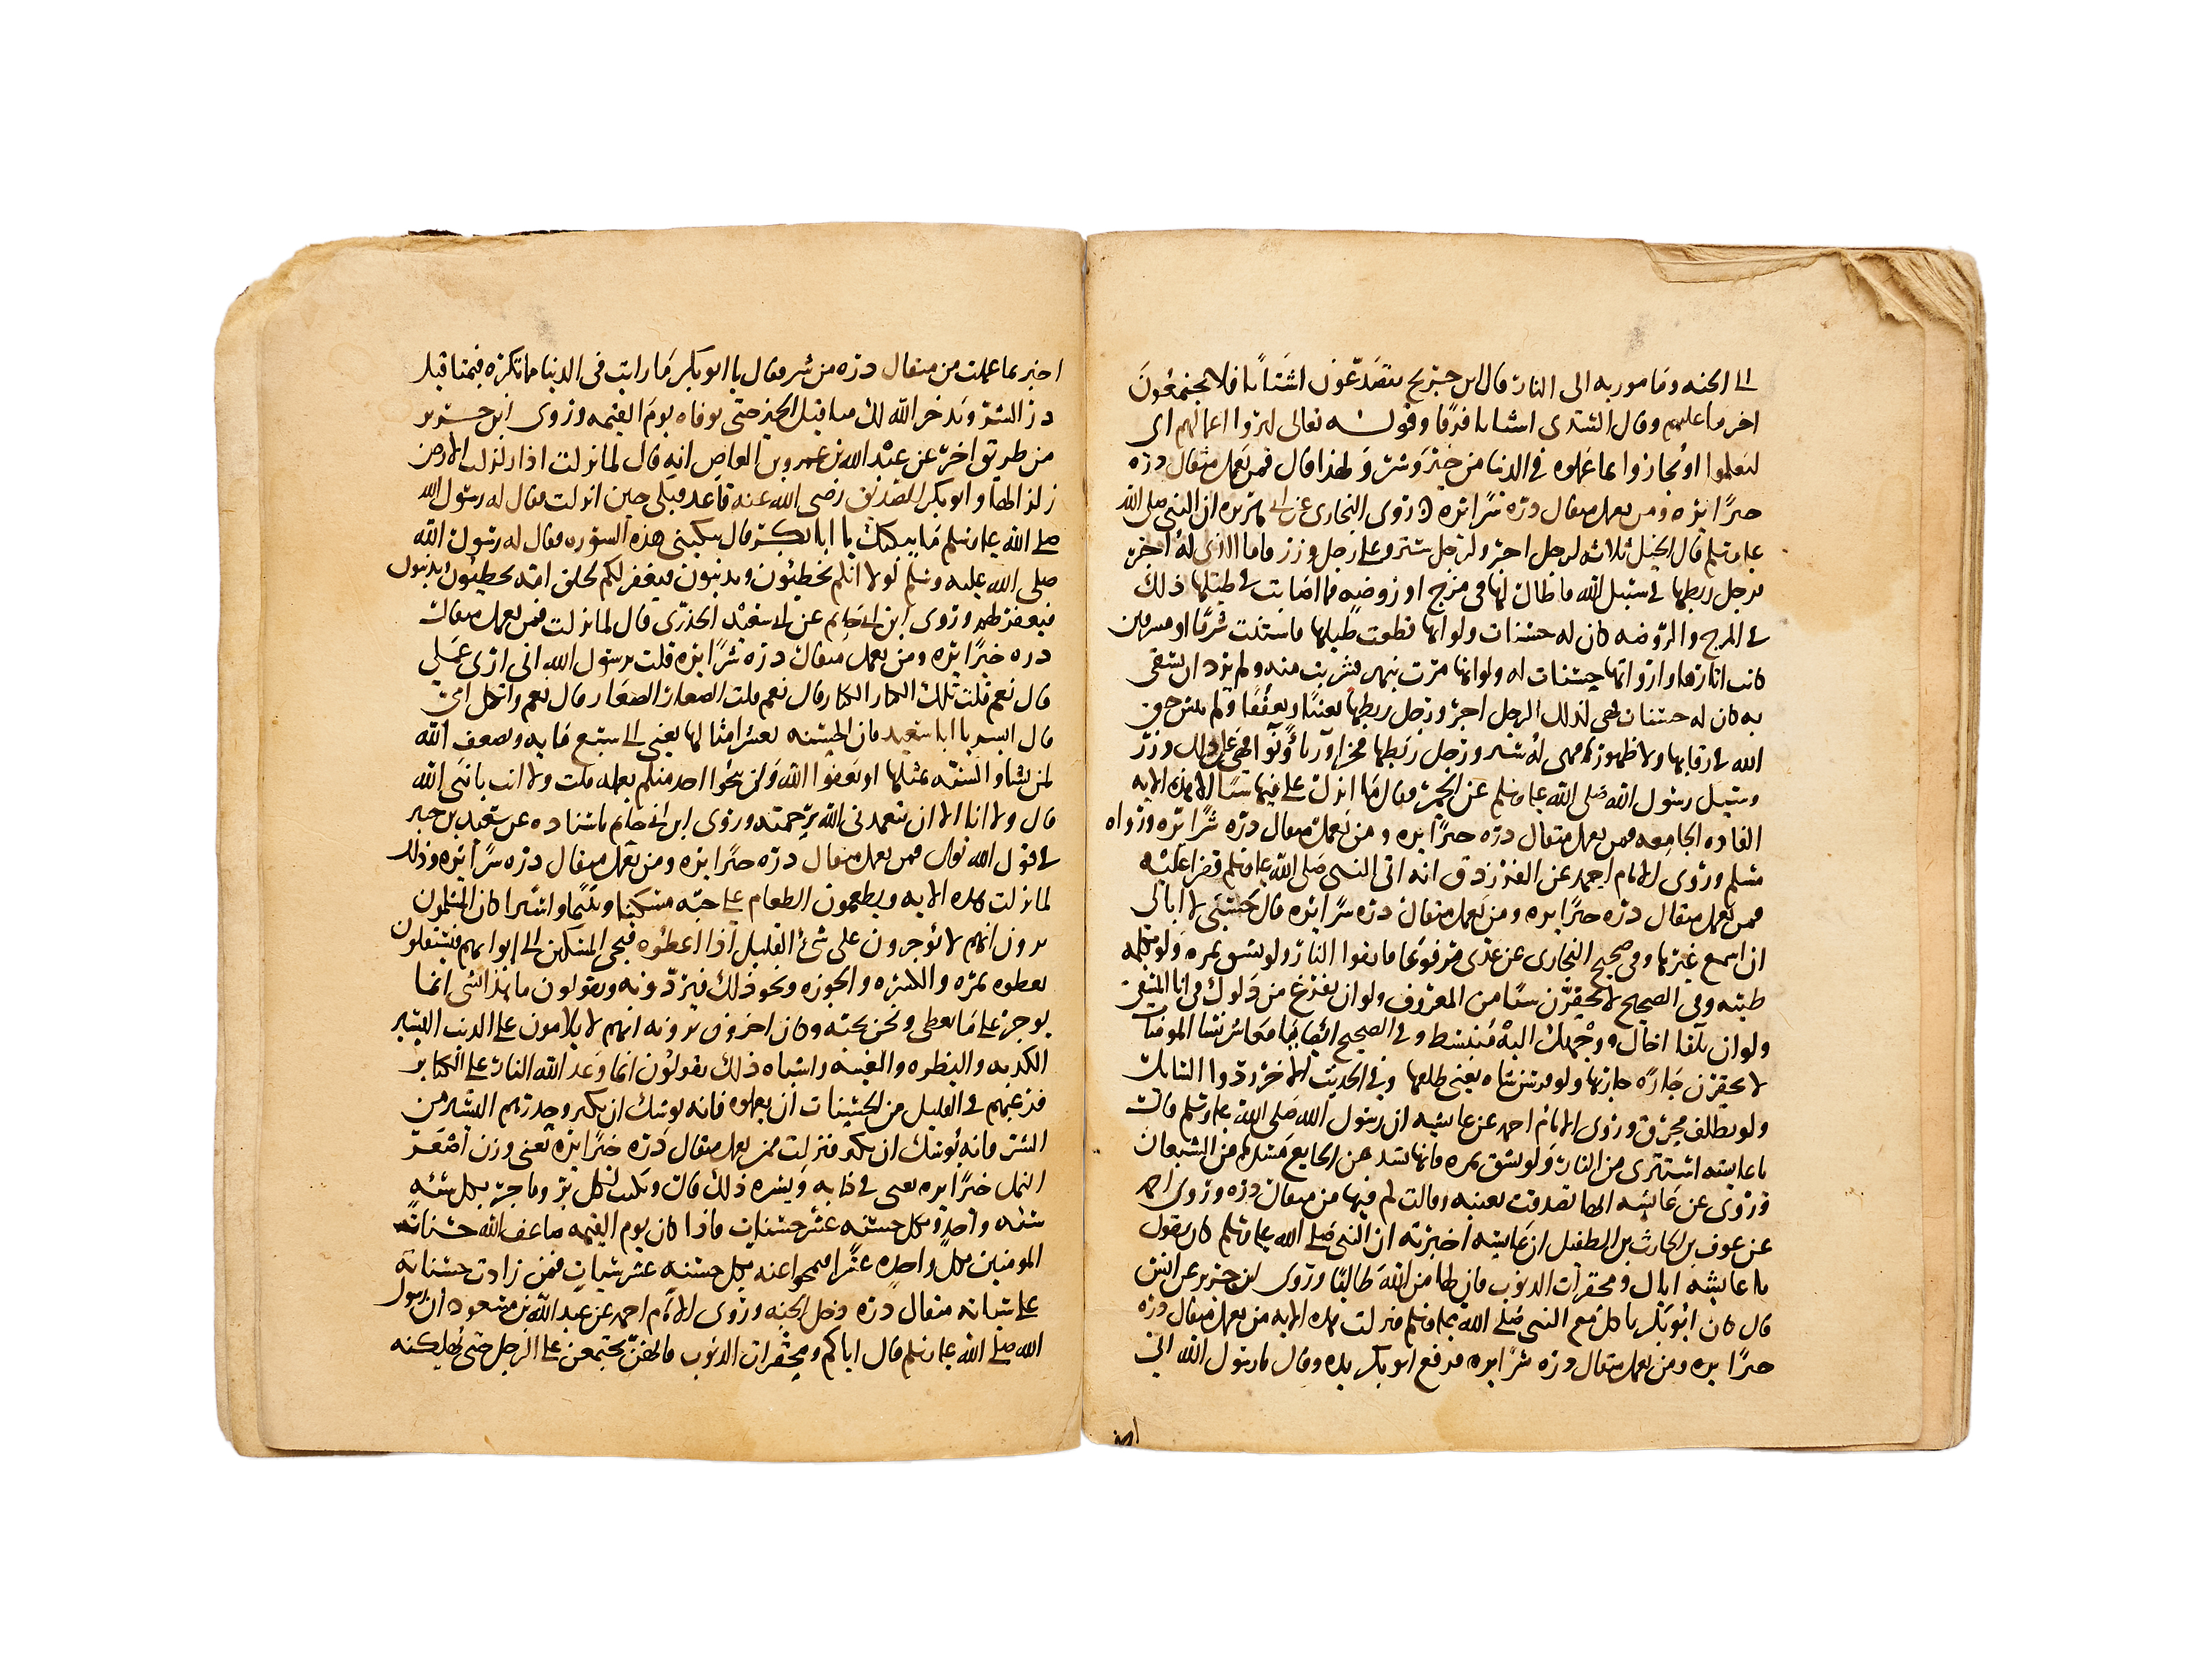 الى الجنه ومامور به الى النار قال ابن جريج يتصدعون اشتاتا فلا يجتمعون
اخر ما عليهم وقال السدى اشتاتا فرقا وقوله تعالى ليروا اعمالهم اى
ليعلموا اويجازوا بما عملوه فى الدنيا من خير وشر ولهذا قال فمن يعمل مثقال ذره
خيرا يره ومن يعمل مثقال ذره شرا يره روى البخارى عن ابى هريره ان النبى صلى الله
عليه وسلم قال الخيل ثلاثه لرجل اجر ولرجل ستر وعلى رجل وزر فاما الذى له اجر
فرجل ربطها فى سبيل الله فاطال لها فى مرج او روضه فما اصابت فى طيلها ذلك
فى المرج والروضه كان له حسنات ولو انها قطعت طيلها فاستنت شرفا او شرفين
كانت اثارها وارواثها حسنات له ولو انها مرت بنهر فشربت منه ولم يرد ان يسقى
به كان له حسنات فهى لذلك الرجل اجر ورجل ربطها تغنيا وتعففا ولم ينس حق
الله فى رقابها ولا ظهورها فهى له ستر ورجل ربطها فخرا ورياء ونوا فهى على ذلك وزر
وسئل رسول الله صلى الله عليه وسلم عن الحمر فقال ما انزل على فيها شيئا الا هذه الايه
الفاذه الجامعه فمن يعمل مثقال ذره خيرا يره ومن يعمل مثقال ذره شرا يره ورواه
مسلم وروى الامام احمد عن الفرزدق انه اتى النبى صلى الله عليه وسلم فقرا عليه
فمن يعمل مثقال ذره خيرا يره ومن يعمل مثقال ذره شرا يره قال حسبى لا ابالى
ان اسمع غيرها وفى صحيح البخارى عن عدى مرفوعا فاتقوا النار ولو بشق تمره ولو بكلمه
طيبه وفى الصحيح لا تحقرن شيئا من المعروف ولو ان تفرغ من دلوك فى انا المستقى
ولو ان تلقا اخاك ووجهك اليه منبسط وفى الصحيح ايضا يا معاشر نسا المومنات
لا تحقرن جاره جارتها ولو فرسن شاه يعنى ظلفها وفى الحديث الاخر ردوا السايل
ولو بظلف محرق وروى الامام احمد عن عايشه ان رسول الله صلى الله عليه وسلم قال
يا عايشه استترى من النار ولو بشق تمره فانها تسد من الجايع مسدها من الشبعان
وروى عن عايشه انها تصدقت بعنبه وقالت كم فيها من مثقال ذره وروى احمد
عن عوف بن الحارث بن الطفيل ان عايشه اخبرته ان النبى صلى الله عليه وسلم كان يقول
يا عايشه اياك ومحقرات الذنوب فان لها من الله طالبا وروى ابن جرير عن انس
قال كان ابو بكر ياكل مع النبى صلى الله عليه وسلم فنزلت هذه الايه من يعمل مثقال ذره
خيرا يره ومن يعمل مثقال ذره شرا يره فرفع ابو بكر يده وقال يا رسول الله انى
اخبر بما عملت من مثقال ذره من شر فقال يا ابو بكر ما رايت فى الدنيا مما تكره فبمثاقيل
ذر الشر ويدخر الله لك مثاقيل الخير حتى توفاه يوم القيمه وروى ابن جرير
من طريق اخر عن عبد الله بن عمرو بن العاص انه قال لما نزلت اذا زلزلت الارض
زلزالها وابو بكر الصديق رضى الله عنه قاعد فبكى حين انزلت فقال له رسول الله
صلى الله عليه وسلم ما يبكيك يا ابا بكر قال يبكينى هذه السوره فقال له رسول الله
صلى الله عليه وسلم لولا انكم تخطئون وتذنبون فيغفر لكم لخلق امه يخطئون ويذنبون
فيغفر لهم وروى ابن ابى حاتم عن ابى سعيد الخدرى قال لما نزلت فمن يعمل مثقال
ذره خيرا يره ومن يعمل مثقال ذره شرا يره قلت يرسول الله انى ارى عملى
قال نعم قلت تلك الكبار الكبار قال نعم قلت الصغار الصغار قال نعم واثكل امى
قال ابشر يا ابا سعيد فان الحسنه بعشر امثالها يعنى الى سبع مايه ويضعف الله
لمن يشا والسيئه بمثلها او يعفوا الله ولن ينجوا احد منكم بعمله قلت ولا انت يا نبى الله
قال ولا انا الا ان يتغمدنى الله برحمته وروى ابن ابى حاتم باسناده عن سعيد بن جبير
فى قول الله تعالى فمن يعمل مثقال ذره خيرا يره ومن يعمل مثقال ذره شرا يره وذلك
لما نزلت هذه الايه ويطعمون الطعام على حبه مسكينا ويتيما واسيرا كان المسلمون
يرون انهم لا يوجرون على شئ القليل اذا اعطوه فيجى المسكين الى ابوابهم فيستقلون
يعطوه تمره والكسره والجوزه ونحو ذلك فيردونه ويقولون ما هذا شى انما
يوجر على ما نعطى ونحن نحبه وكان اخرون يرونه انهم لا يلامون على الذنب اليسير
الكذبه والنظره والغيبه واشباه ذلك يقولون انما وعد الله النار على الكبائر
فرغبهم فى القليل من الحسنات ان يعملوه فانه يوشك ان يكثر وحذرهم اليسير من
الشر فانه يوشك ان يكثر فنزلت فمن يعمل مثقال ذره خيرا يره يعنى وزن اصغر
النمل خيرا يره يعنى فى كتابه ويسره ذلك قال ويكتب لكل بر وفاجر بكل سيئه
سيئه واحده وبكل حسنه عشر حسنات فاذا كان يوم القيمه ضاعف الله حسنات
المومنين بكل واحده عشرا فيمحوا عنه بكل حسنه عشر سيات فمن زادت حسناته
على سياته مثقال ذره دخل الجنه وروى الامام احمد عن عبد الله بن مسعود ان رسول
الله صلى الله عليه وسلم قال اياكم ومحقرات الذنوب فانهن يجتمعن على الرجل حتى يهلكنه